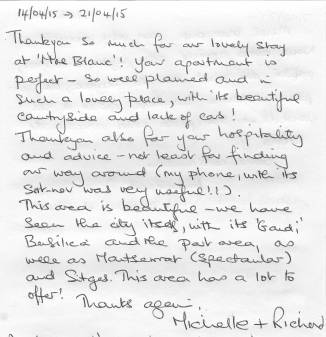 14/04/15 → 21/04/15
Thankyou so much for our lovely stay
at 'Mre Blanc'! Your apartment is
perfect - so well planned and in
such a lovely place, with its beautiful
countryside and lack of cars!
Thankyou also for your hospitality
and advice - not least for finding
our way around (my phone, with its
Satnav was very useful!!).
This area is beautiful - we have
seen the city itself, with its 'Gaudi'
Basilica and the port area, as
well as Montserrat (Spectacular)
and Sitges. This area has a lot to
offer! Thanks again,
Michelle + Richard